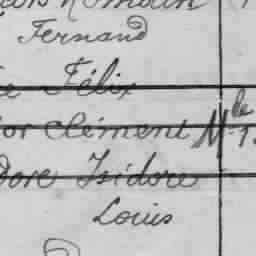 Romain
Fernand
Félix
Clément Mlle
Isidore
Louis